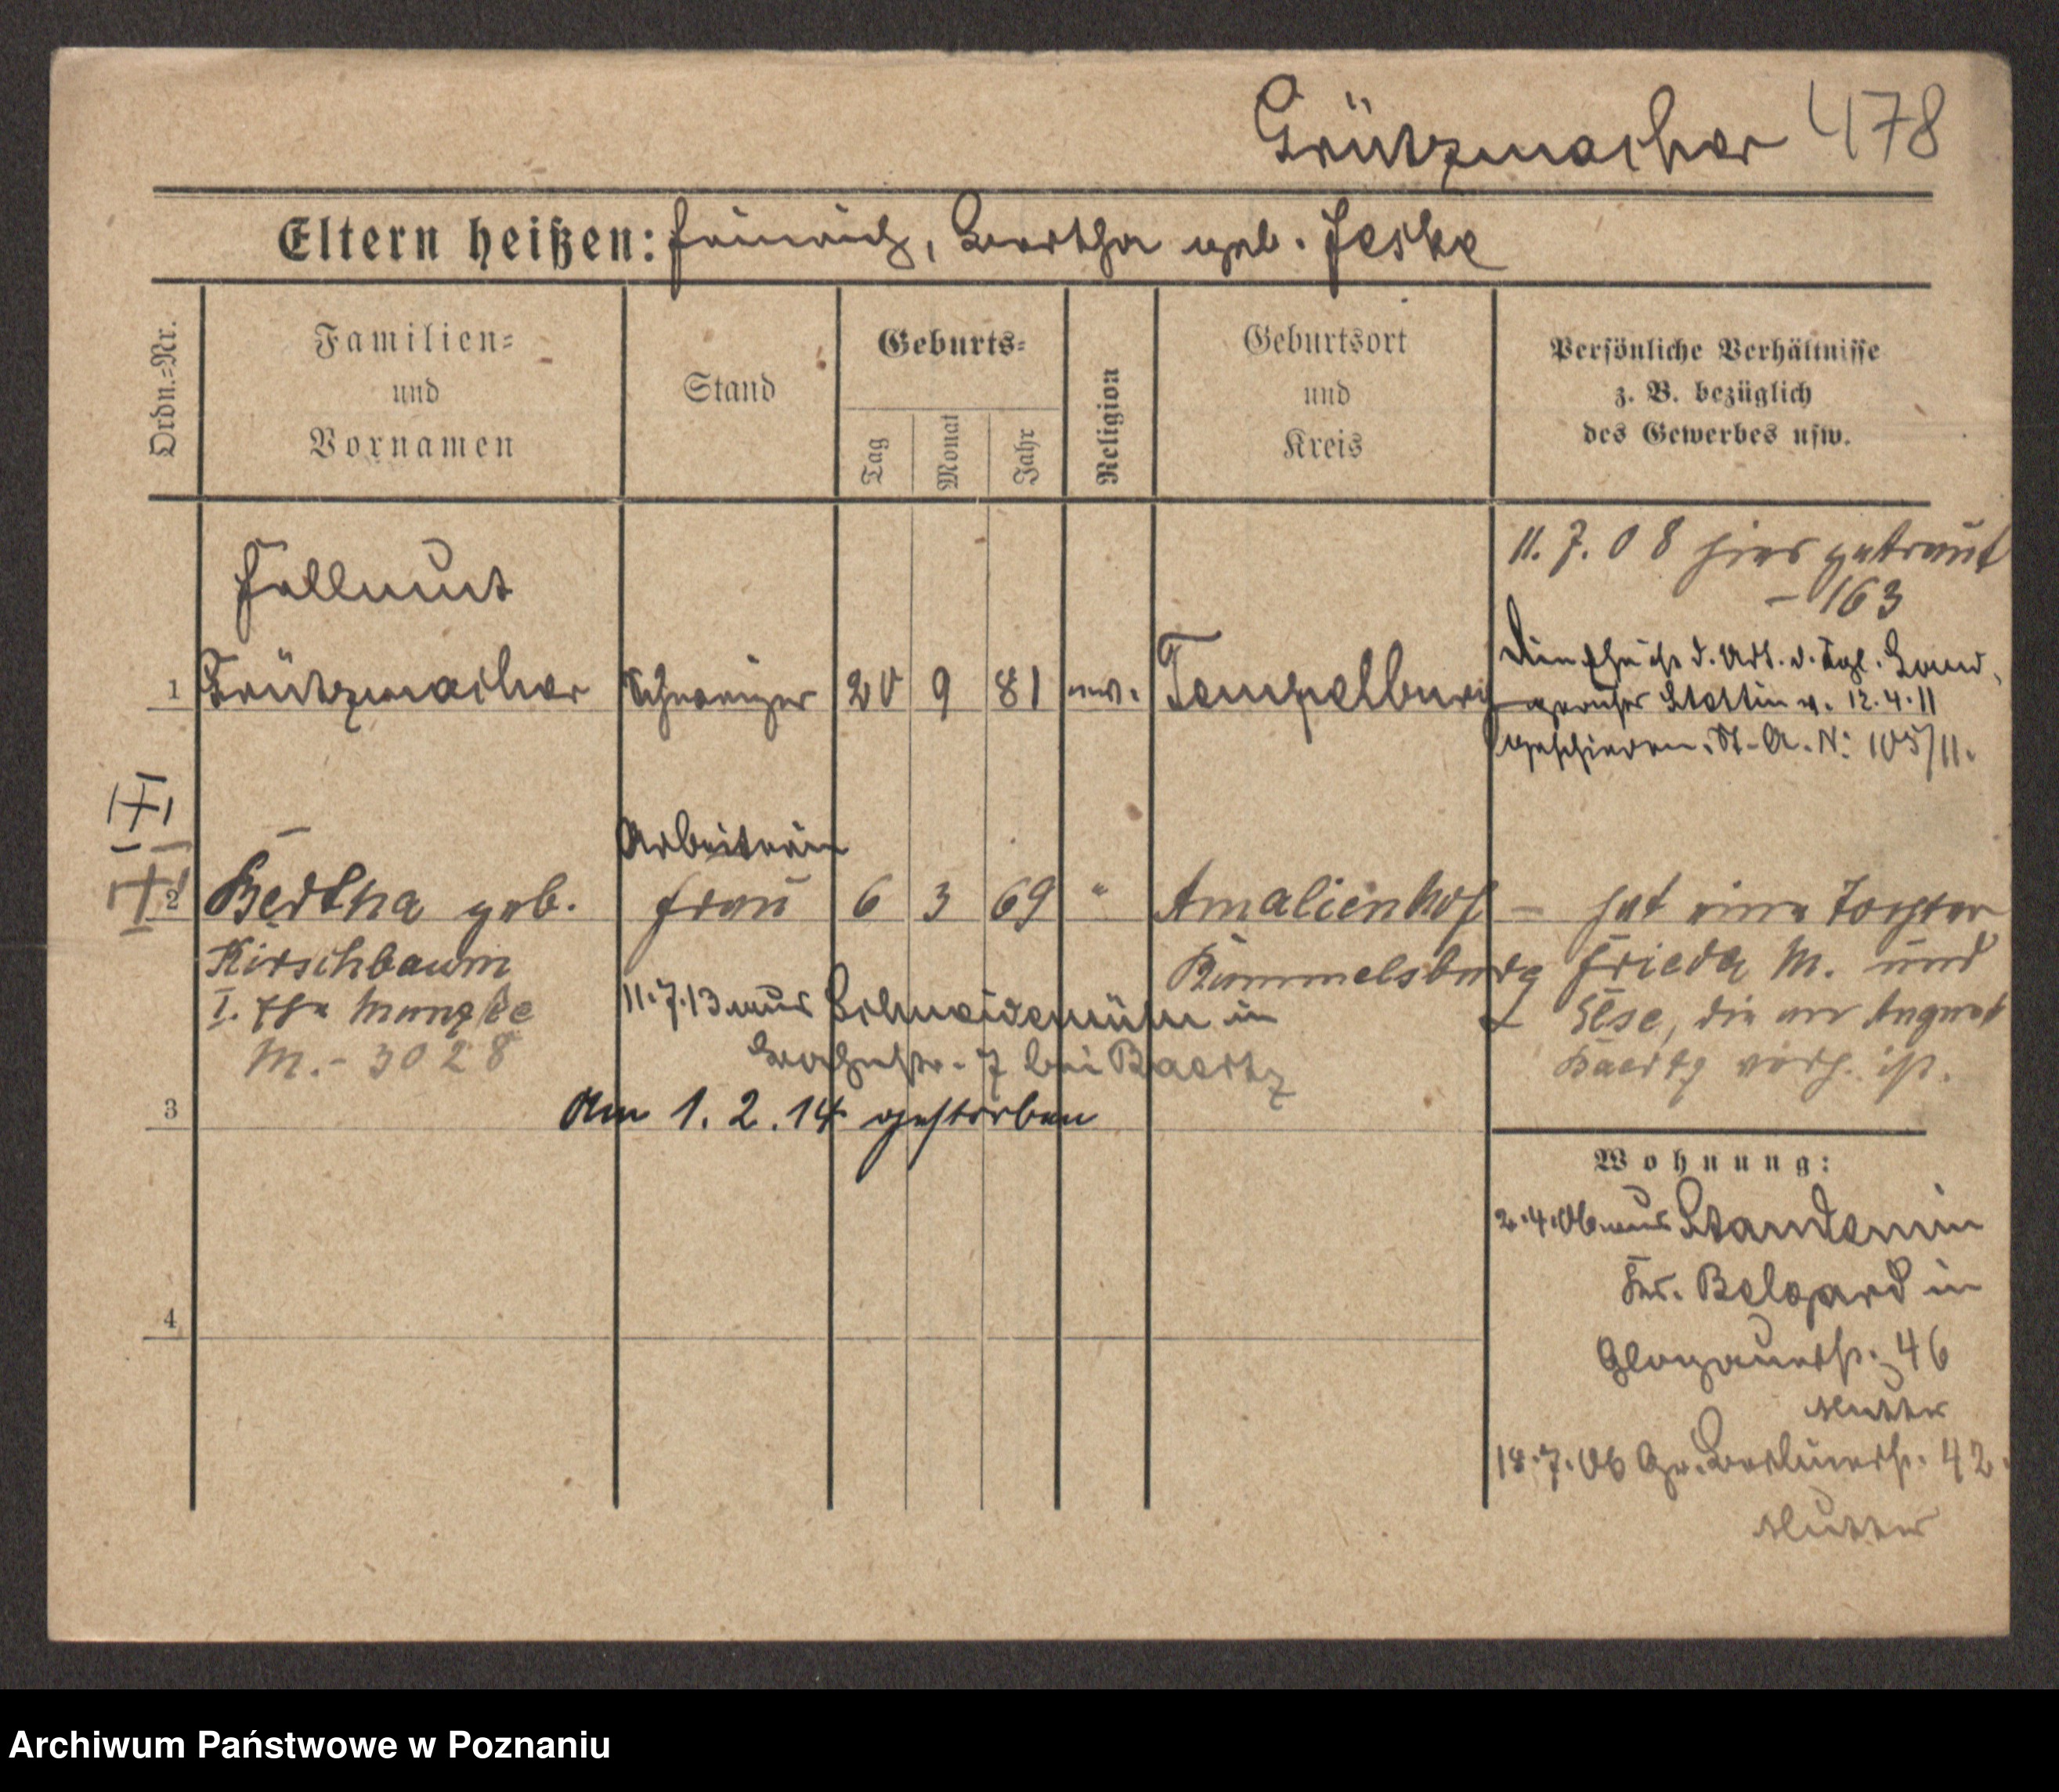 Grützmacher 478
Eltern heißen: Heinrich, Bertha geb. Jeske
Ordn.=Nr.
Familien=
und
Vornamen
Stand
Geburts=
Tag
Monat
Jahr
Religion
Geburtsort
und
Kreis
Persönliche Verhältnisse
z. B. bezüglich
des Gewerbes usw.
11. 7. 08 hier getraut
– 163
Hellmut
1 Grützmacher Schweizer 20 9 81 ev. Tempelburg
Die Ehe ist d. Urt. d. Kgl. Land-
gerichts Stettin v. 12.4.11
geschieden. St.-A. N: 105/11.
Arbeiterin
2 Bertha geb. Frau 6 3 69 " Amalienhof – hat eine Tochter
Kirschbaum Rummelsburg Frieda M. und
I. Ehe
11.7.13 aus Schneidemühl in
Else, die an August
M. - 3028
7 bei Baertz
Baertz verh. ist.
3 Am 1. 2. 14 gestorben
Wohnung:
2.4.06 aus Standemin
Kr. Belgard in
4
Glogauerstr. 46
Mutter
18.7.06 Gr. Berlinerstr. 42.
Mutter
Archiwum Państwowe w Poznaniu